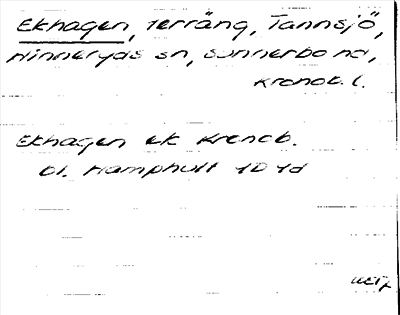 Ekhagen, terräng, Tannsjö,
Hinneryds sn, Sunnerbo hd,
Kronob. l.
Ekhagen ek Kronob.
bl. Hamphult 10 1d